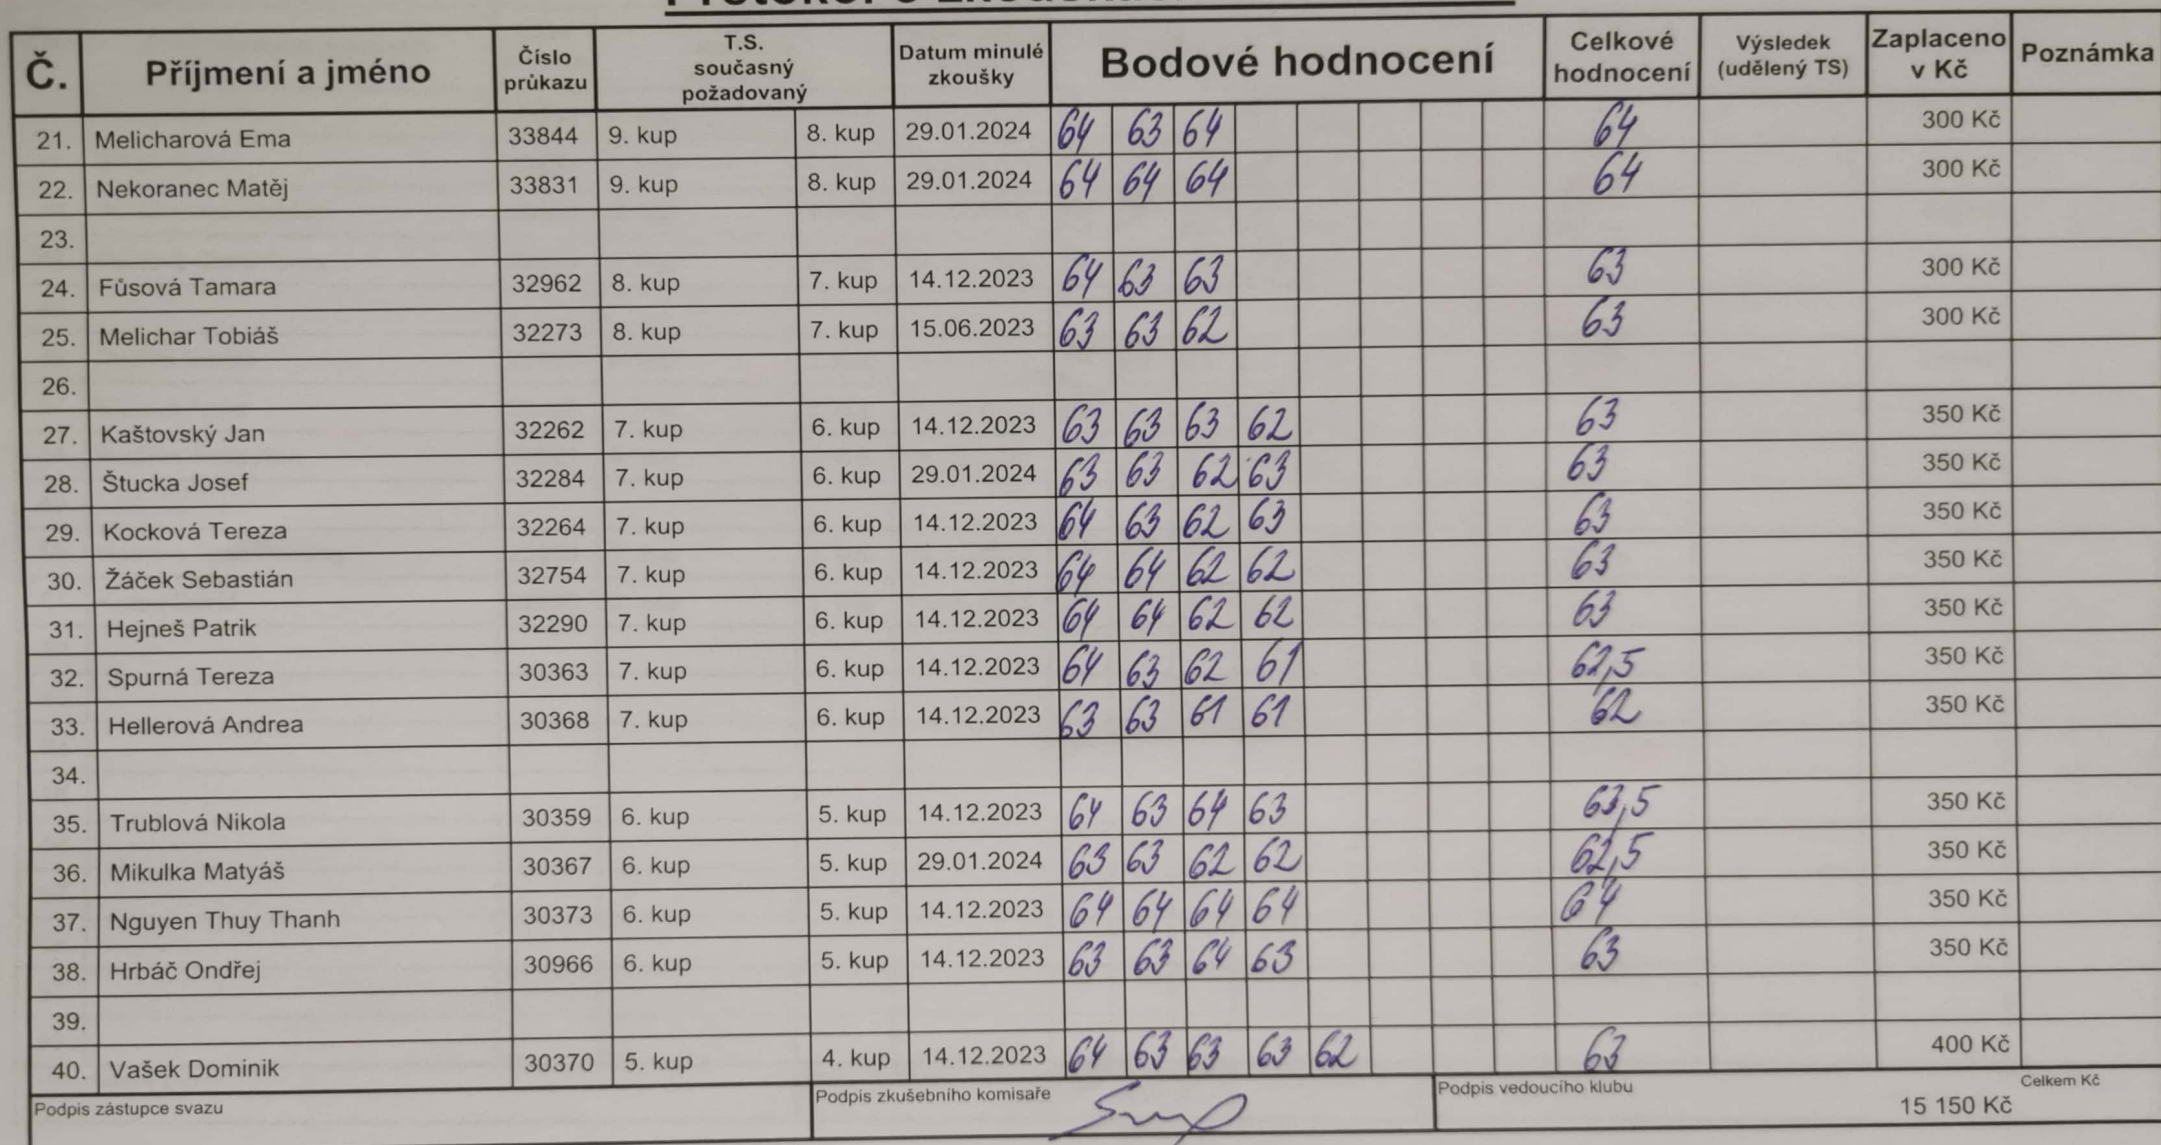 Č. Příjmení a jméno Číslo průkazu T.S. současný požadovaný Datum minulé zkoušky Bodové hodnocení Celkové hodnocení Výsledek (udělený TS) Zaplaceno v Kč Poznámka
21. Melicharová Ema 33844 9. kup 8. kup 29.01.2024 64 63 64 64 300 Kč
22. Nekoranec Matěj 33831 9. kup 8. kup 29.01.2024 64 64 64 64 300 Kč
23.
24. Fůsová Tamara 32962 8. kup 7. kup 14.12.2023 64 63 63 63 300 Kč
25. Melichar Tobiáš 32273 8. kup 7. kup 15.06.2023 63 63 62 63 300 Kč
26.
27. Kaštovský Jan 32262 7. kup 6. kup 14.12.2023 63 63 63 62 63 350 Kč
28. Štucka Josef 32284 7. kup 6. kup 29.01.2024 63 63 62 63 63 350 Kč
29. Kocková Tereza 32264 7. kup 6. kup 14.12.2023 64 63 62 63 63 350 Kč
30. Žáček Sebastián 32754 7. kup 6. kup 14.12.2023 64 64 62 62 63 350 Kč
31. Hejneš Patrik 32290 7. kup 6. kup 14.12.2023 64 64 62 62 63 350 Kč
32. Spurná Tereza 30363 7. kup 6. kup 14.12.2023 64 63 62 61 62,5 350 Kč
33. Hellerová Andrea 30368 7. kup 6. kup 14.12.2023 63 63 61 61 62 350 Kč
34.
35. Trublová Nikola 30359 6. kup 5. kup 14.12.2023 64 63 64 63 63,5 350 Kč
36. Mikulka Matyáš 30367 6. kup 5. kup 29.01.2024 63 63 62 62 62,5 350 Kč
37. Nguyen Thuy Thanh 30373 6. kup 5. kup 14.12.2023 64 64 64 64 64 350 Kč
38. Hrbáč Ondřej 30966 6. kup 5. kup 14.12.2023 63 63 64 63 63 350 Kč
39.
40. Vašek Dominik 30370 5. kup 4. kup 14.12.2023 64 63 63 63 62 63 400 Kč
Podpis zástupce svazu Podpis zkušebního komisaře Podpis vedoucího klubu Celkem Kč
15 150 Kč